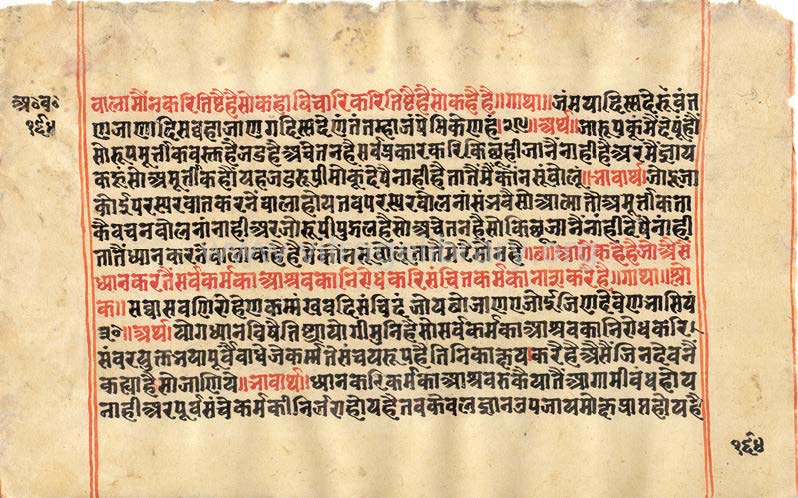 अ॰व॰
१६४
वाला मौंन करि तिष्टै है सो कहा विचारि करि तिष्टै है सो कहै है॥गाथा॥ जं मया दिस्सदे रूवं तं
ण जाणादि सव्वहा जाणगं दिस्सदे णंतं तम्हा जंपेमि केण हं २९॥अर्थ॥ जो रूपकूं मैं देषूं हौं
सो रूप मूर्त्तीक वस्तु है जड है अचेतन है सर्व प्रकार करि किछू ही जानैं नाही है अर मैं ज्ञाय
क हूं सो अमूर्त्तीक हौं यह जड रूपी मोकूं देषै नाही है तातैं मैं कौंन सूं बोलूं॥भावार्थ॥ जो दूजा
कोई परस्पर बात करने वाला होय तब परस्पर बोलना संभवै सो आत्मा तो अमूर्त्तीक ता
कै वचन बोलनां नांही अर जो रूपी पुद्गल है सो अचेतन है सो किछू जानैं नांही देषै नांही
तातैं ध्यान करनेवाला कहै है मैं कौन सूं बोलूं तातैं मेरै मौन है॥ आगैं कहै है जो असैं
ध्यान करतैं सर्व कर्म का आश्रव का निरोध करि संचित कर्म का नाश करै है॥गाथा॥श्लो
क॥ सव्वासवणिरोहेण कम्मं खवदि संचिदं जोयत्थो जाणए जोई जिणदेवेण भासियं
३०॥अर्थ॥ योग ध्यान विषै तिष्ठ्या योगी मुनि है सो सर्व कर्म का आश्रव का निरोध करि
संवरयुक्त भया पूर्वै बांधे जे कर्म्म ते संचयरूप है तिनिका क्षय करै है असैं जिनदेव नैं
कह्या है सो जाणिये॥भावार्थ॥ ध्यान करि कर्म का आश्रव रुकै यातैं आगामी बंध होय
नाही अर पूर्व संचे कर्म की निर्जरा होय है तब केवलज्ञान उपजाय मोक्ष प्राप्त होय है
१६४